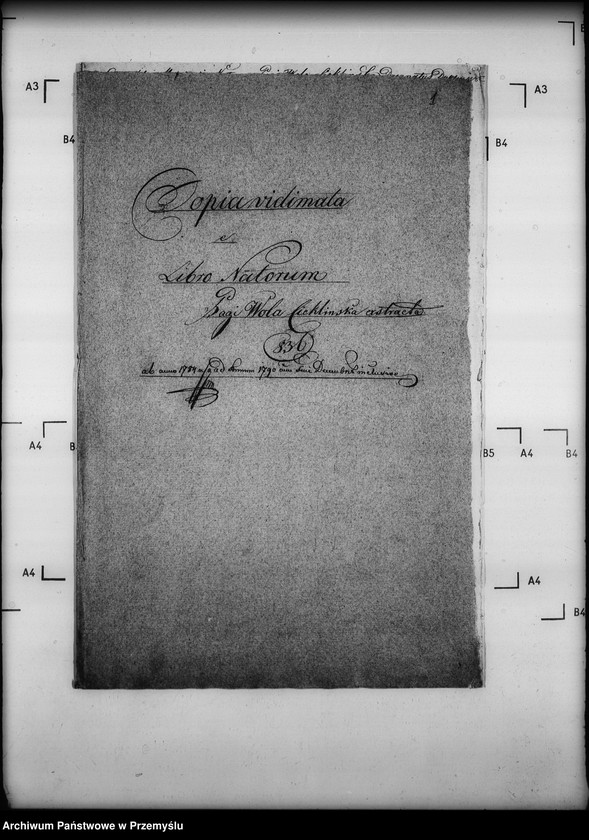 1
Copia vidimata
e
Libro Natorum
Pagi Wola Cieklinska extracta
536
ab anno 1784 ad annum 1790 cum fine Decembris inclusive
A3
A3
B4
B4
A4
B5
A4
B4
A4
A4
B4
Archiwum Państwowe w Przemyślu